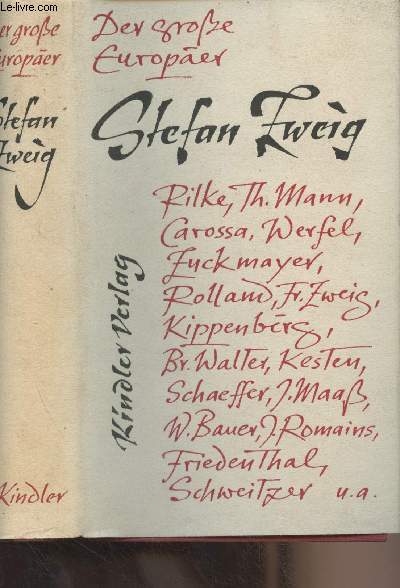 Le-livre.com
Der große
Europäer
Stefan
Zweig
Kindler
Der große
Europäer
Stefan Zweig
Rilke, Th. Mann,
Carossa, Werfel,
Zuckmayer,
Rolland, Fr. Zweig,
Kippenberg,
Br. Walter, Kesten,
Schaeffer, J. Maaß,
W. Bauer, J. Romains,
Friedenthal,
Schweitzer u.a.
Kindler Verlag